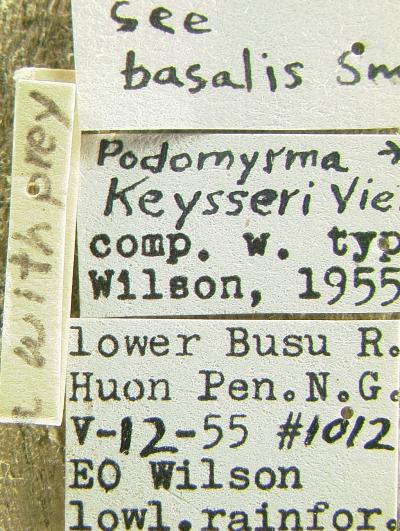 see
basalis Sm
with prey
Podomyrma →
Keysseri Vie
comp. w. typ
Wilson, 1955
lower Busu R.
Huon Pen. N.G.
V-12-55 #1012
EO Wilson
lowl.rainfor.